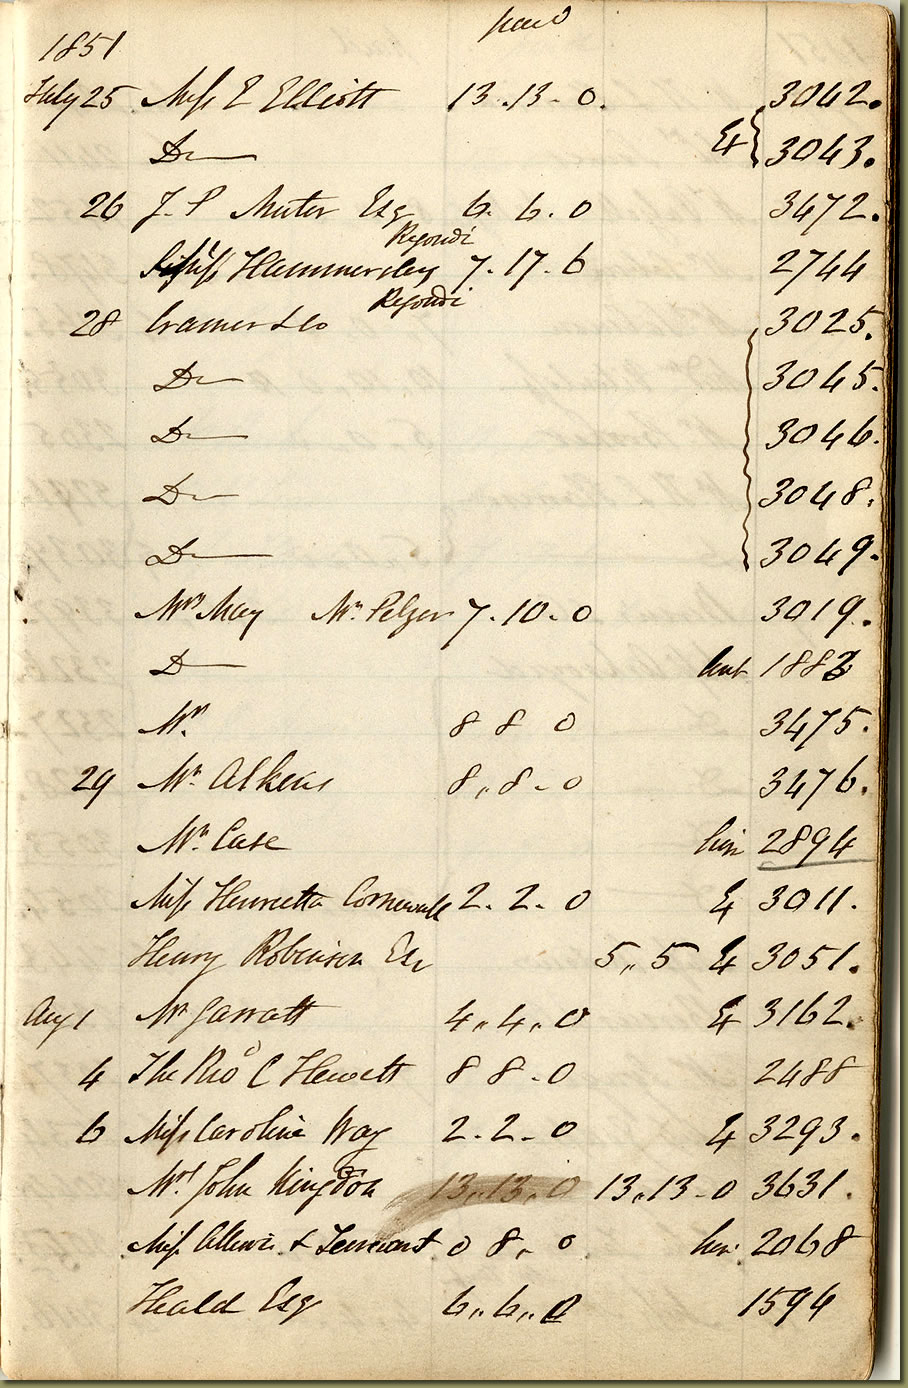 paid
1851
July 25 Miss E Elliott 13.13-0. 3042.
Do E 3043.
26 J. P. Muter Esq 6. 6. 0 3472.
Regondi
Miss Hammersley 7. 17. 6 2744
Regondi
28 Cramer & Co 3025.
Do 3045.
Do 3046.
Do 3048.
Do 3049.
Mrs May Mr. Pelzer 7. 10. 0 3019.
Do 1883
Mr. 8 8 0 3475.
29 Mr. Alkeas 8,,8-0 3476.
Mr. Case hire 2894
Miss Henrietta Cornewall 2. 2. 0 E 3011.
Henry Robinson Esq 5,,5 E 3051.
Aug 1 Mr Jarratt 4,,4,,0 E 3162.
4 The Revd C Hewett 8 8-0 2488
6 Miss Caroline Way 2. 2-0 E 3293.
Mr. John Kingdon 13,,13,,0 13,,13-0 3631.
Miss & Tennant 0 8,,0 hire 2068
Heald Esq 6,,6,,0 1594